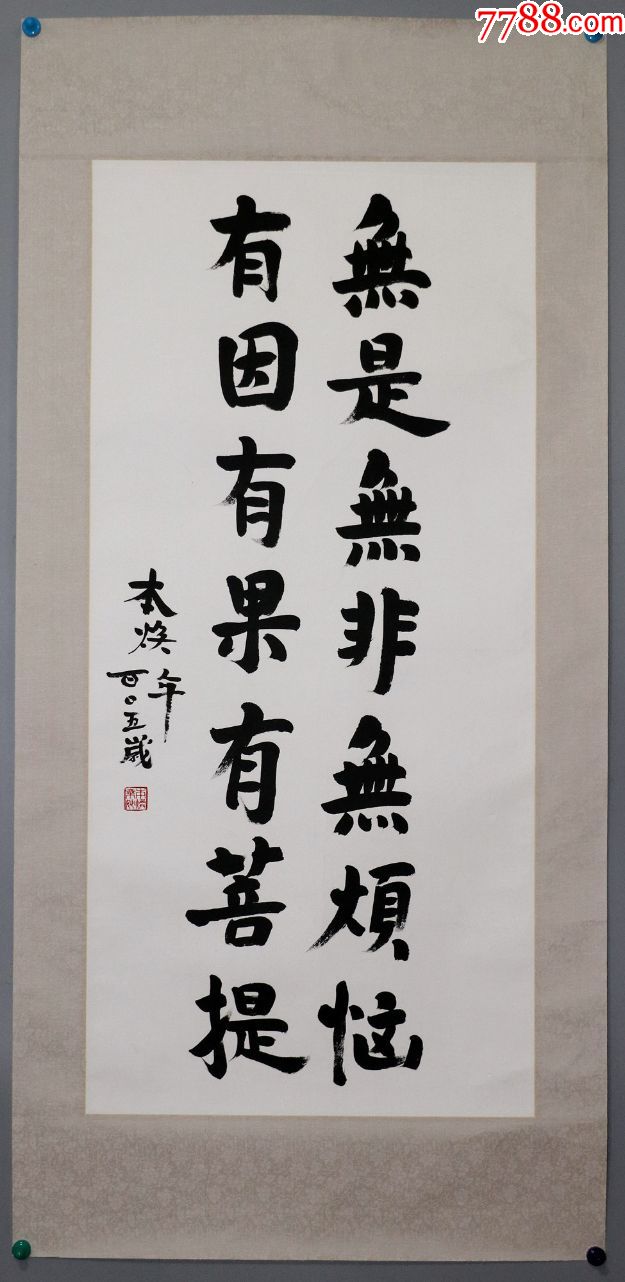 7788.com
無是無非無煩恼
有因有果有菩提
本焕
年百〇五歲